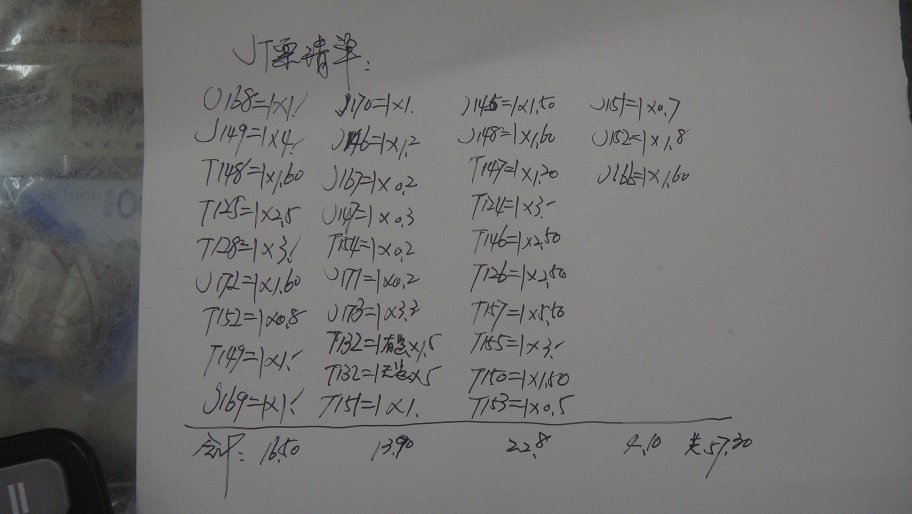 JT票清单:
J168=1×1.- J170=1×1. J145=1×1.50 J151=1×0.7
J149=1×4.- J146=1×1.2 J148=1×1.60 J152=1×1.8
T148=1×1.60 J167=1×0.2 T147=1×1.20 J166=1×1.60
T125=1×2.5 J147=1×0.3 T124=1×3.-
T128=1×3.- T154=1×0.2 T146=1×2.50
J172=1×1.60 J171=1×0.2 T126=1×2.50
T152=1×0.8 J173=1×3.3 T157=1×5.50
T149=1×1.- T132=1有卷×1.5 T155=1×3.-
T132=1无卷×5 T150=1×1.50
J169=1×1.- T151=1×1. T153=1×0.5
合计: 16.50 13.90 22.8 4.10 共57.30